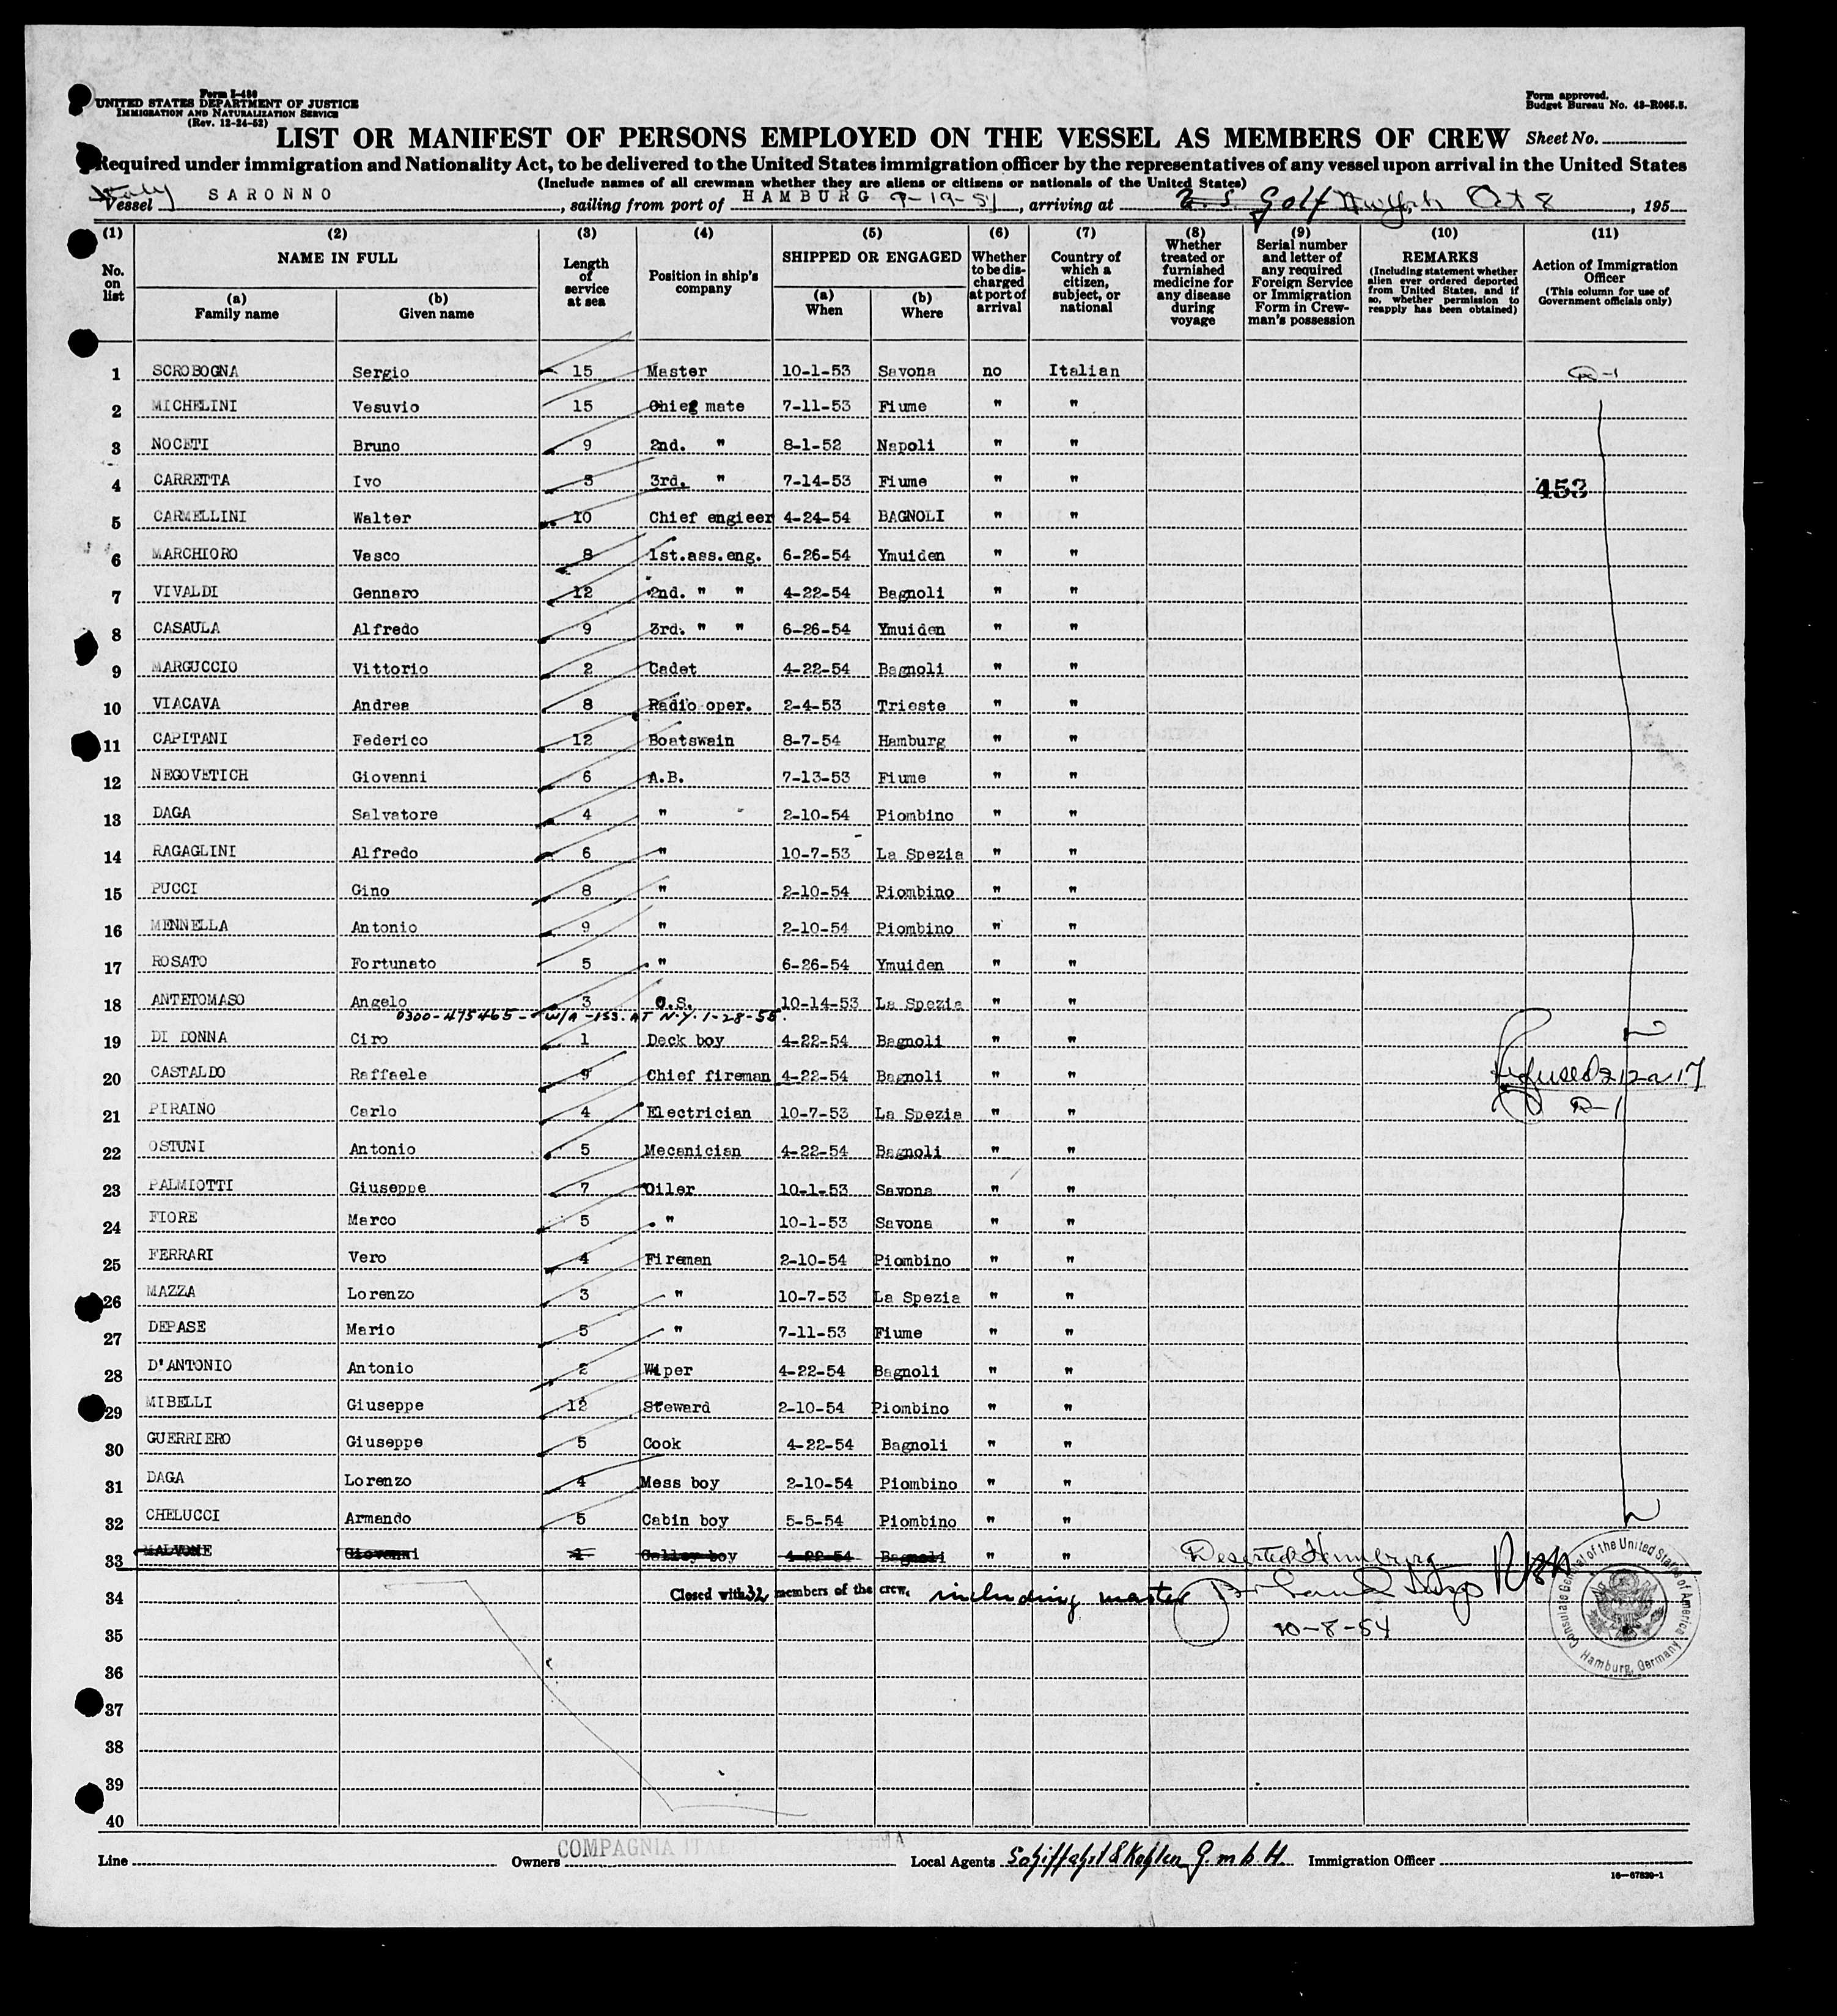 Form I-480
UNITED STATES DEPARTMENT OF JUSTICE
IMMIGRATION AND NATURALIZATION SERVICE
(Rev. 12-24-52)
Form approved.
Budget Bureau No. 43-R065.5.
LIST OR MANIFEST OF PERSONS EMPLOYED ON THE VESSEL AS MEMBERS OF CREW Sheet No.
Required under immigration and Nationality Act, to be delivered to the United States immigration officer by the representatives of any vessel upon arrival in the United States
(Include names of all crewman whether they are aliens or citizens or nationals of the United States)
Italy
Vessel SARONNO, sailing from port of HAMBURG 9-19-54, arriving at U. S. Golf New York Oct 8, 195
(1) (2) (3) (4) (5) (6) (7) (8) (9) (10) (11)
No. on list NAME IN FULL Length of service at sea Position in ship's company SHIPPED OR ENGAGED Whether to be discharged at port of arrival Country of which a citizen, subject, or national Whether treated or furnished medicine for any disease during voyage Serial number and letter of any required Foreign Service or Immigration Form in Crewman's possession REMARKS (Including statement whether alien ever ordered deported from United States, and if so, whether permission to reapply has been obtained) Action of Immigration Officer (This column for use of Government officials only)
(a) Family name (b) Given name (a) When (b) Where
1 SCROBOGNA Sergio 15 Master 10-1-53 Savona no Italian D-1
2 MICHELINI Vesuvio 15 Chief mate 7-11-53 Fiume " "
3 NOCETI Bruno 9 2nd. " 8-1-52 Napoli " "
4 CARRETTA Ivo 3 3rd. " 7-14-53 Fiume " " 453
5 CARMELLINI Walter 10 Chief engieer 4-24-54 BAGNOLI " "
6 MARCHIORO Vasco 8 1st.ass.eng. 6-26-54 Ymuiden " "
7 VIVALDI Gennaro 12 2nd. " " 4-22-54 Bagnoli " "
8 CASAULA Alfredo 9 3rd. " " 6-26-54 Ymuiden " "
9 MARGUCCIO Vittorio 2 Cadet 4-22-54 Bagnoli " "
10 VIACAVA Andrea 8 Radio oper. 2-4-53 Trieste " "
11 CAPITANI Federico 12 Boatswain 8-7-54 Hamburg " "
12 NEGOVETICH Giovanni 6 A.B. 7-13-53 Fiume " "
13 DAGA Salvatore 4 " 2-10-54 Piombino " "
14 RAGAGLINI Alfredo 6 " 10-7-53 La Spezia " "
15 PUCCI Gino 8 " 2-10-54 Piombino " "
16 MENNELLA Antonio 9 " 2-10-54 Piombino " "
17 ROSATO Fortunato 5 " 6-26-54 Ymuiden " "
18 ANTETOMASO Angelo 3 O.S. 10-14-53 La Spezia " "
0300-475465 - W/A - ISS. AT N.Y. 1-28-55.
19 DI DONNA Ciro 1 Deck boy 4-22-54 Bagnoli " "
20 CASTALDO Raffaele 9 Chief fireman 4-22-54 Bagnoli " " Refused 212-a-17
21 PIRAINO Carlo 4 Electrician 10-7-53 La Spezia " " D-1
22 OSTUNI Antonio 5 Mecanician 4-22-54 Bagnoli " "
23 PALMIOTTI Giuseppe 7 Oiler 10-1-53 Savona " "
24 FIORE Marco 5 " 10-1-53 Savona " "
25 FERRARI Vero 4 Fireman 2-10-54 Piombino " "
26 MAZZA Lorenzo 3 " 10-7-53 La Spezia " "
27 DEPASE Mario 5 " 7-11-53 Fiume " "
28 D'ANTONIO Antonio 2 Wiper 4-22-54 Bagnoli " "
29 MIBELLI Giuseppe 12 Steward 2-10-54 Piombino " "
30 GUERRIERO Giuseppe 5 Cook 4-22-54 Bagnoli " "
31 DAGA Lorenzo 4 Mess boy 2-10-54 Piombino " "
32 CHELUCCI Armando 5 Cabin boy 5-5-54 Piombino " "
33 MALVONE Giovanni 1 Galley boy 4-22-54 Bagnoli " " Deserted Hamburg
34 Closed with 32 members of the crew, including master
35 10-8-54
36
37
38
39
40
Consulate General of the United States of America
Hamburg, Germany
Line Owners COMPAGNIA ITAL Local Agents Schiffahrt & Kohlen G.m.b.H. Immigration Officer
16-67829-1